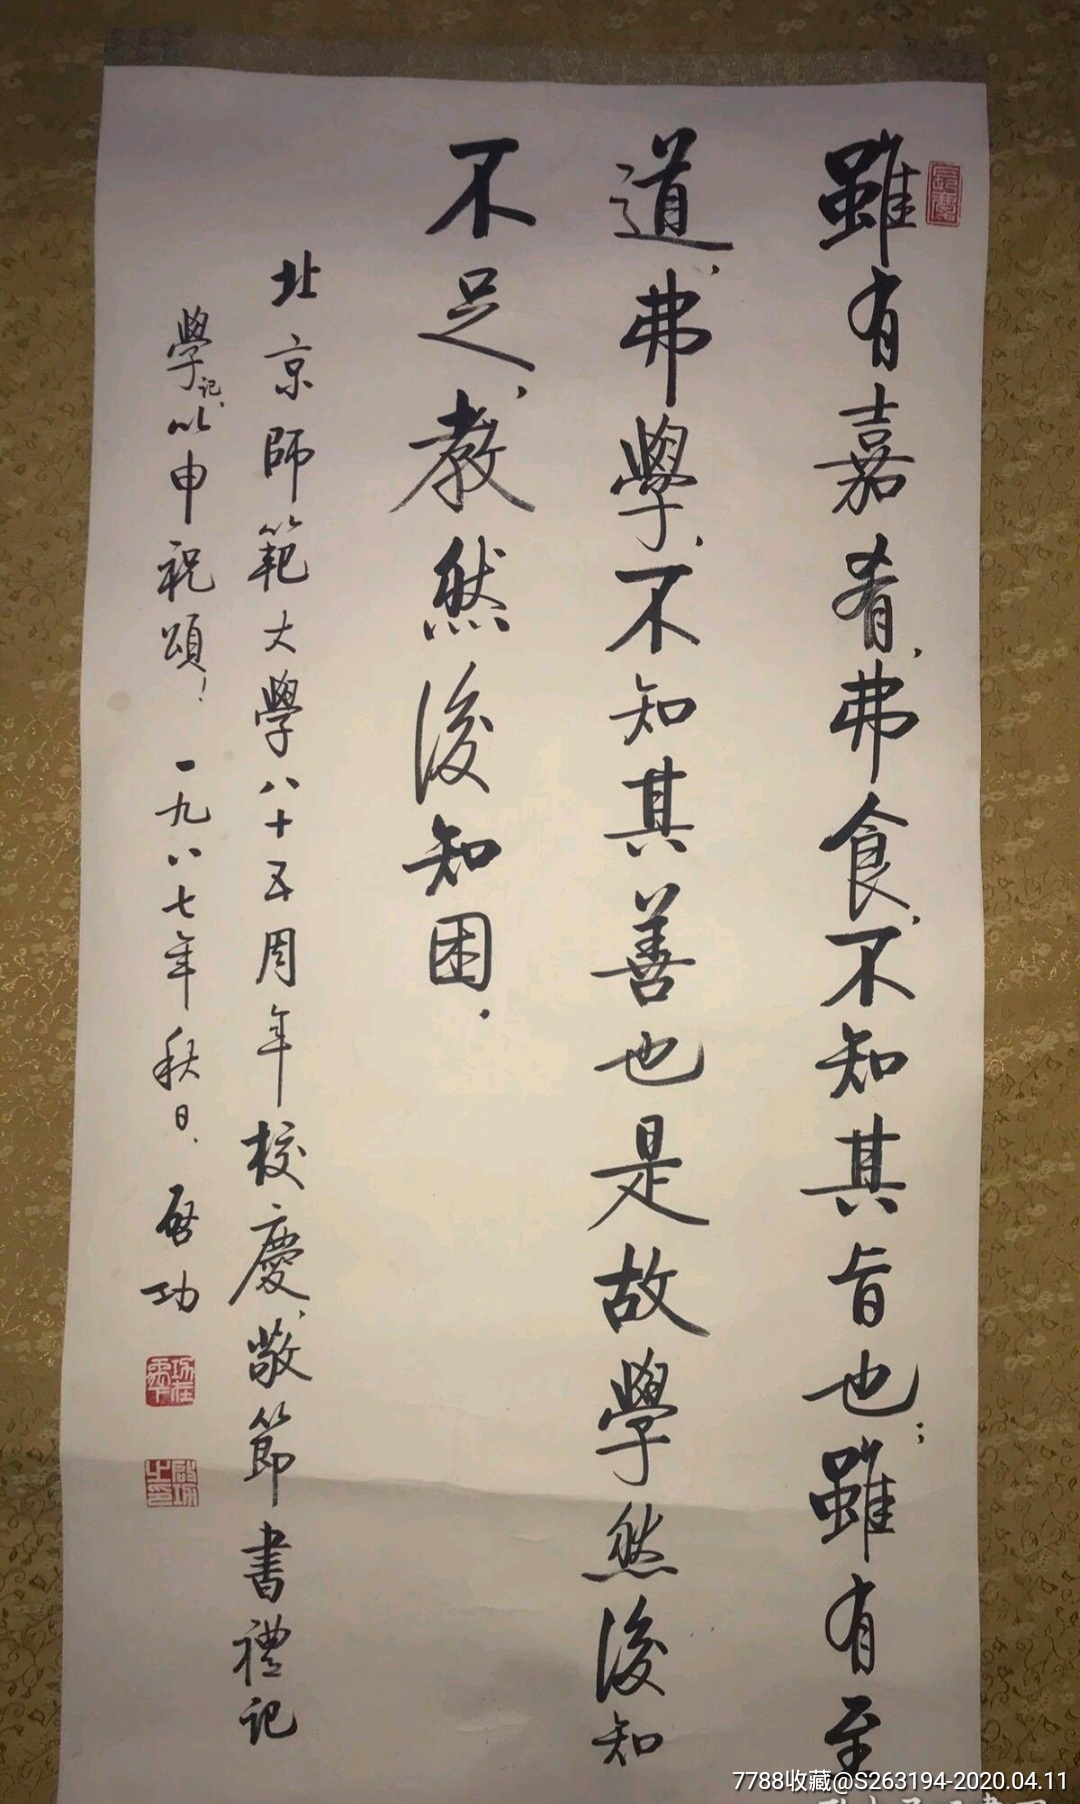 雖有嘉肴，弗食，不知其旨也；雖有至
道，弗學，不知其善也是故學然後知
不足，教然後知困.
北京師範大學八十五周年校慶，敬節書禮記
學記、以申祝頌！一九八七年秋日、啟功
啟功之印
7788收藏@S263194-2020.04.11